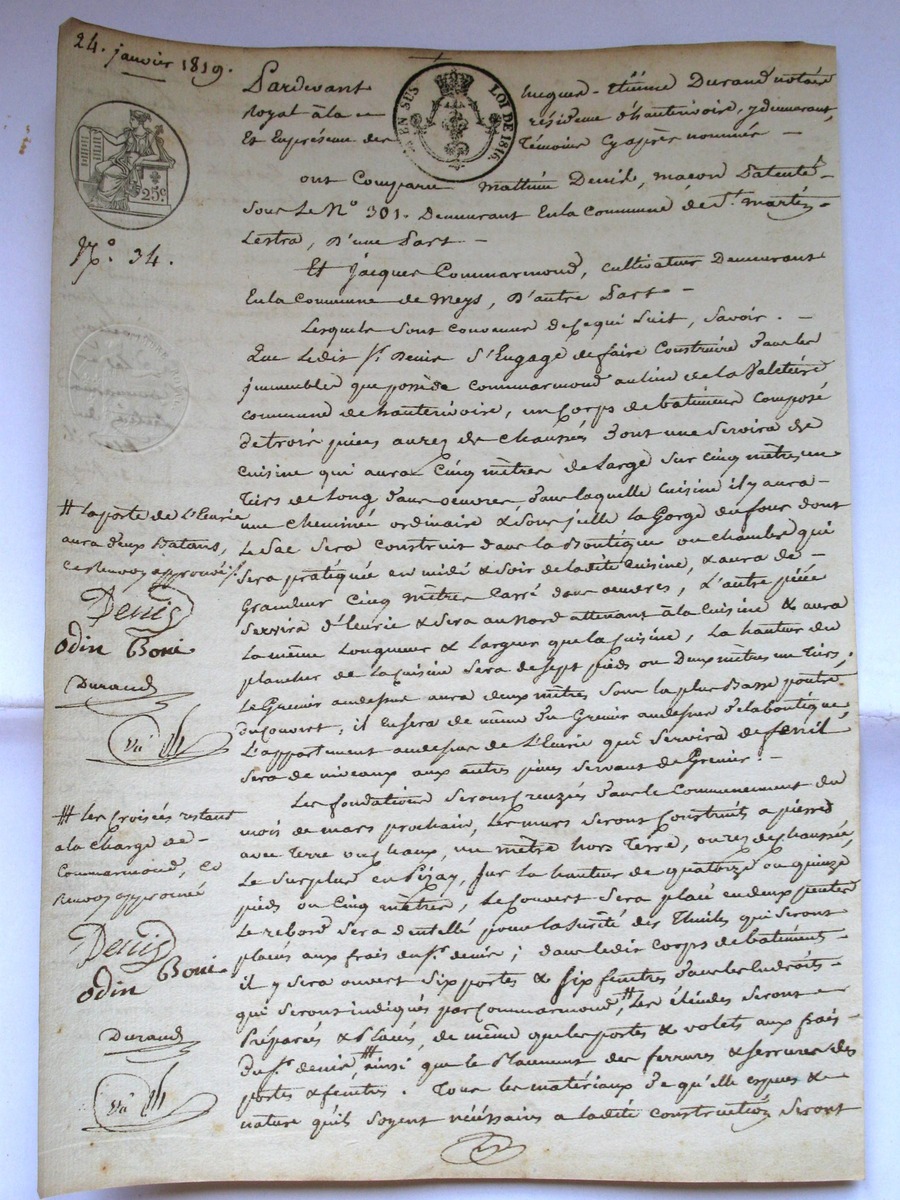 24. janvier 1819.
EN SUS LOI DE 1816.
25c.
N.º 34.
Pardevant hugues-Étienne Durand notaire
royal à la résidence d'hauterivoire, y demeurant,
Et En présence des Témoins Cy après nommés —
ont Comparu Mathieu Denis, maçon Patenté
sous Le Nº 301. Demeurant En la Commune de St. martin
Lestra, D'une Part —
Et Jacques Commarmond, cultivateur Demeurant
En la Commune de Meys, D'autre Part —
Lesquels sont convenus de Ce qui Suit, Savoir. —
Que Ledit Sr. Denis S'Engage de faire Construire dans les
immeubles que possède Commarmond au lieu de La Valetière
commune de hauterivoire, un Corps de batiment Composé
de trois pièces au rez de chaussée dont une Servira de
cuisine qui aura Cinq mètres de Large Sur cinq mètres un
tiers de Long dans oeuvres, dans laquelle cuisine il y aura
une cheminée ordinaire & sous icelle la Gorge du four dont
Le Sac sera construit dans la Boutique ou chambre qui
sera pratiquée en midi & soir de ladite Cuisine, & aura de
Grandeur Cinq mètres Carré dans oeuvres, L'autre pièce
Servira d'Ecurie & Sera au Nord attenant à la Cuisine & aura
La même Longueur & Largeur que la Cuisine, La hauteur du
plancher de La cuisine sera de sept pieds ou Deux mètres un Tiers,
Le Grenier au dessus aura deux mètres sous la plus Basse poutre
du couvert, il En sera de même du Grenier au dessus de la boutique
L'appartement au dessus de L'Ecurie qui Servira de fenil
sera de niveaux aux autres pièces servant de Grenier. —
Les fondations seront Creuzées dans le Commencement du
mois de mars prochain, Les murs seront Construits a pierres
avec Terre ou chaux, un mètre hors Terre, au rez de chaussée,
Le Surplus en Pizay, sur la hauteur de quatorze ou quinze
pieds ou Cinq mètres, Le Couvert Sera placé en deux pentes
Le rebord sera dentellé pour la Sureté des Thuiles qui seront
placés aux frais du Sr. denis; dans ledit corps de batiment
il y sera ouvert six portes & six fenêtres dans les Endroits
qui seront indiqués par Commarmond,# Les étendes seront
Préparés & Placés, de même que les portes & volets aux frais
du Sr. denis,## ainsi que le Placement des ferrures & serrures des
portes & fenêtres. Tous les matériaux de quelle espèces &
nature qu'ils soyent nécéssaires a ladite construction seront
# La porte de L'Ecurie
aura deux Batans,
ce Renvoy approuvé
Denis
odin Boni
Durand
Vu
## Les Croisées restant
a la Charge de
Commarmond, Ce
Renvoy approuvé
Denis
odin Boni
Durand
Vu